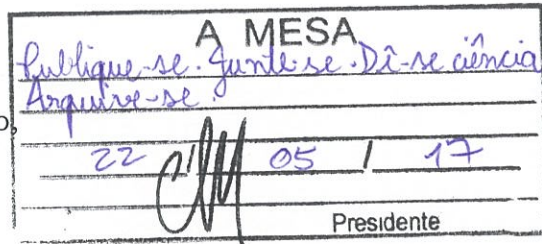 A MESA
Publique-se. Junte-se. Dê-se ciência
Arquive-se.
o,
22 / 05 / 17
Presidente